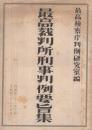 最高検察庁判例研究室編
最高裁判所刑事判例要旨集